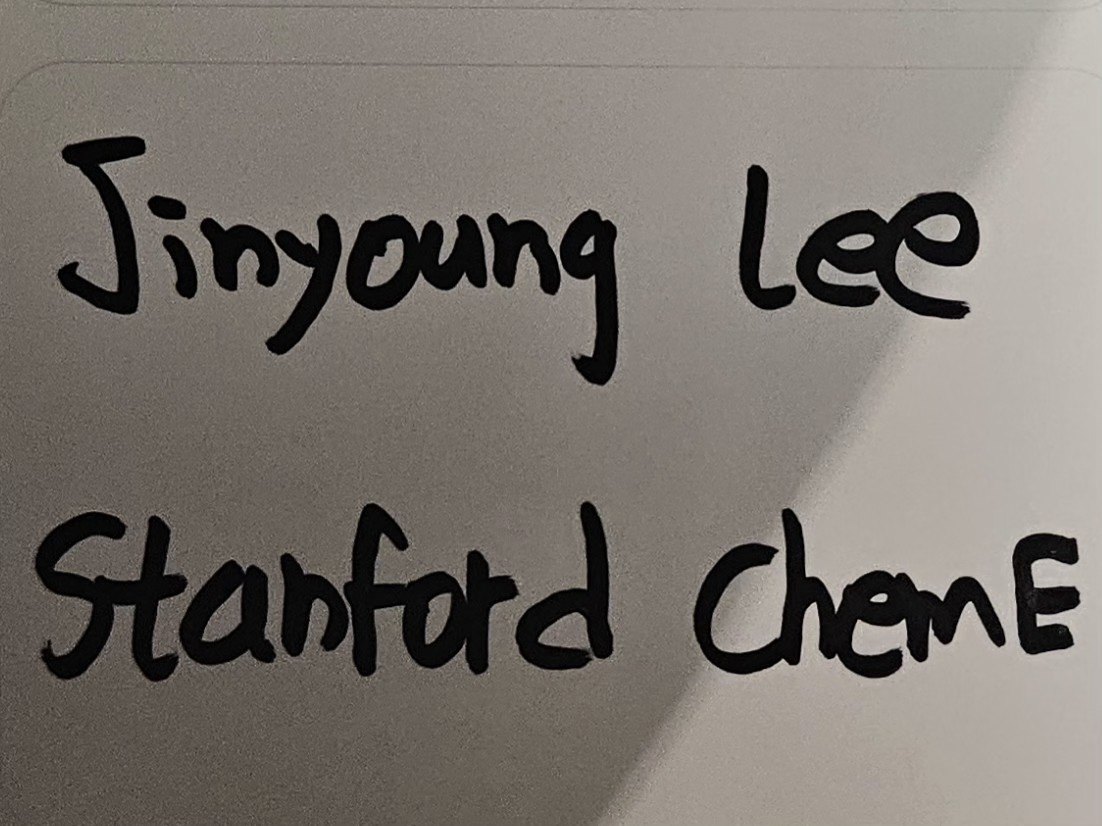 Jinyoung Lee
Stanford ChemE